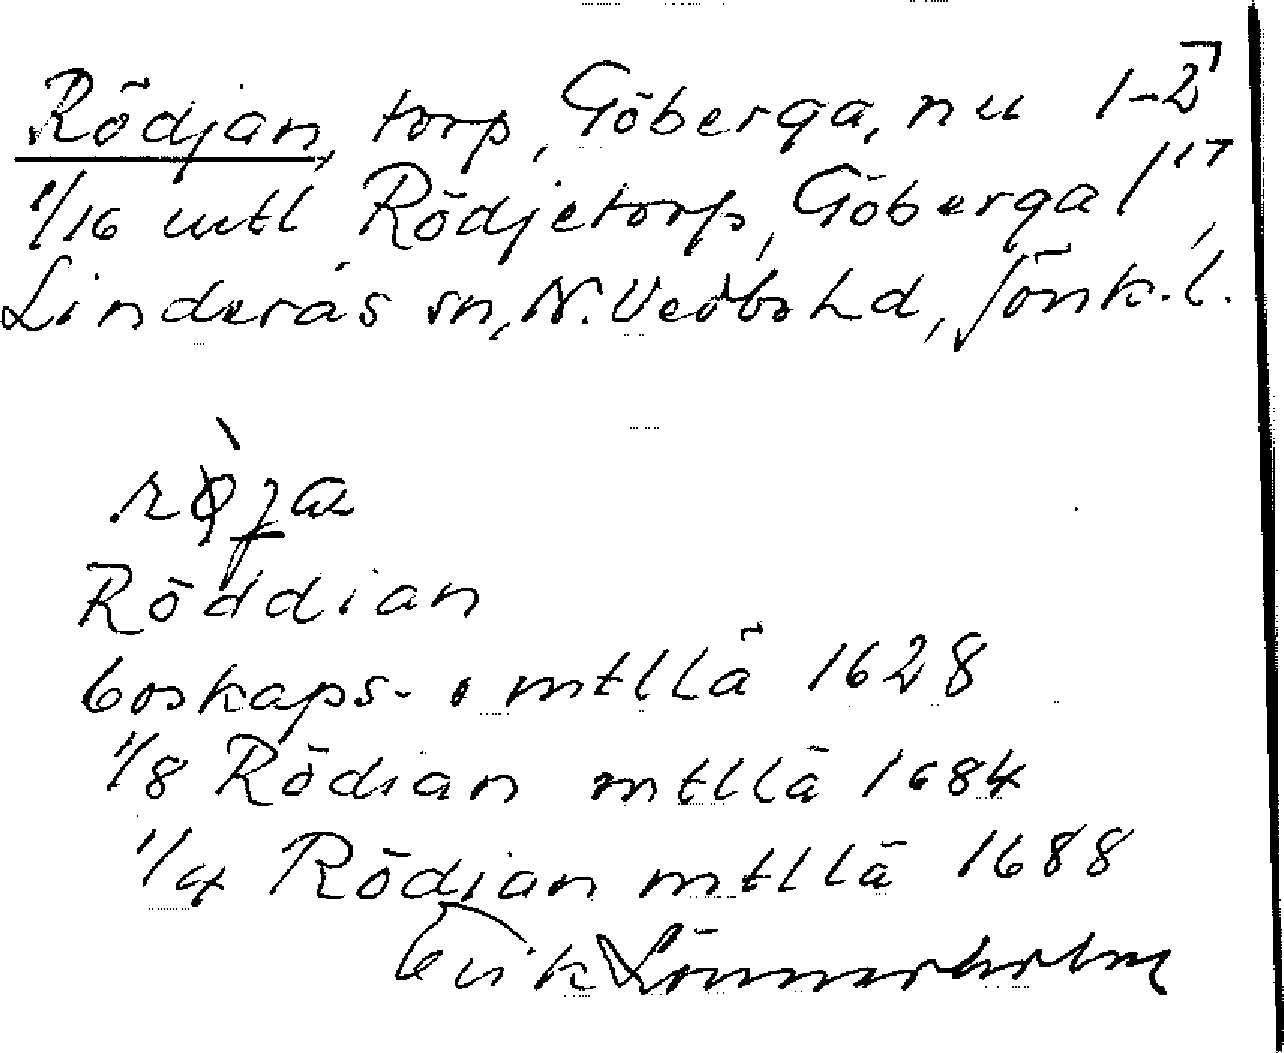 Rödjan, torp, Göberga, nu 1-2⁷
1/16 mtl Rödjetorp, Göberga 1¹⁷,
Linderås sn, N. Vedbo hd, Jönk. l.
rø̀ja
Röddian
boskaps- o mtllä 1628
1/8 Rödian mtllä 1684
1/4 Rödian mtllä 1688
Erik Lönnerholm